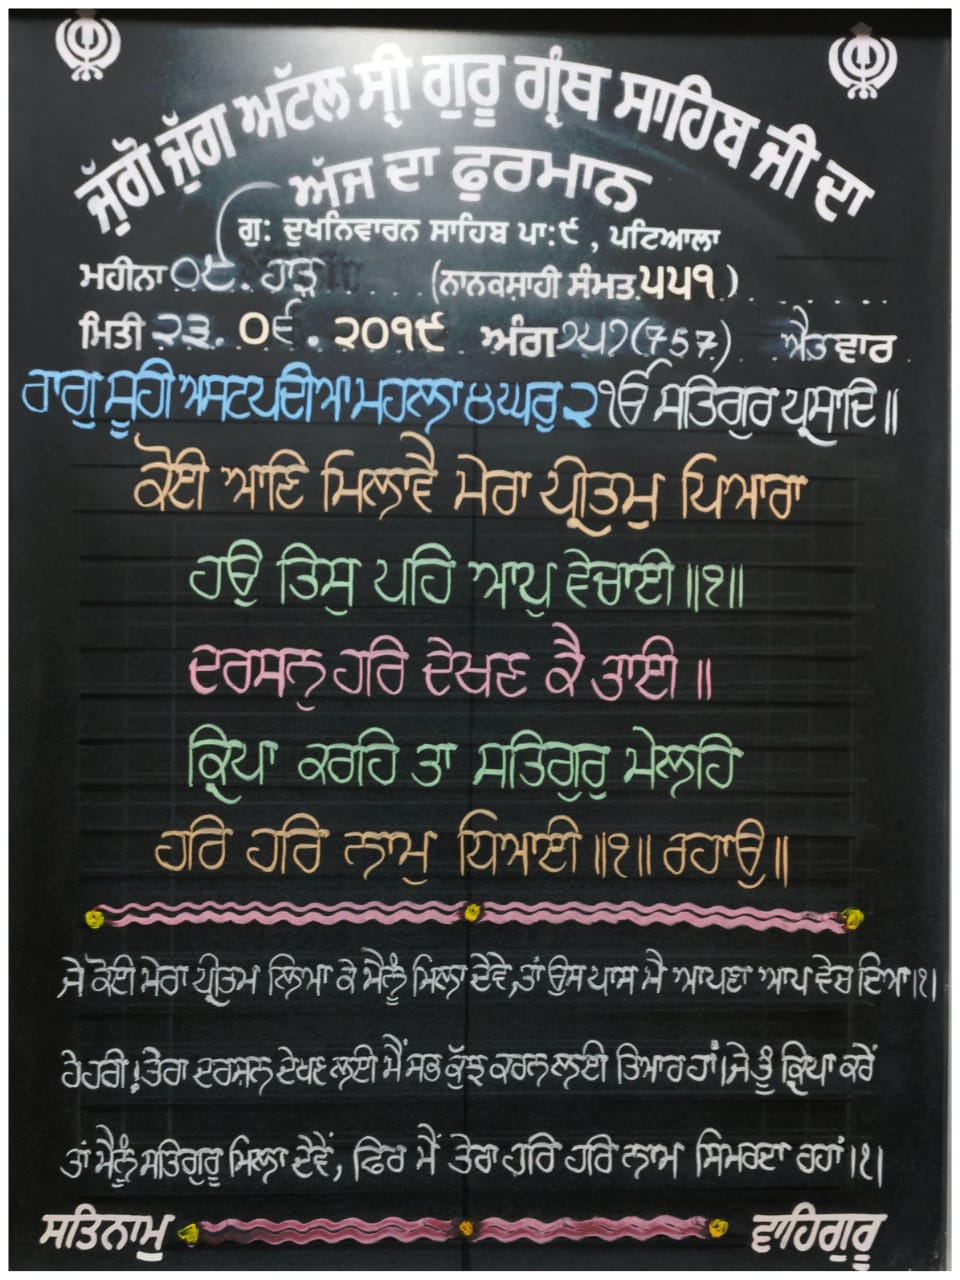 ਜੁੱਗੋ ਜੁੱਗ ਅੱਟਲ ਸ੍ਰੀ ਗੁਰੂ ਗ੍ਰੰਥ ਸਾਹਿਬ ਜੀ ਦਾ
ਅੱਜ ਦਾ ਫੁਰਮਾਨ
ਗੁ: ਦੁਖਨਿਵਾਰਨ ਸਾਹਿਬ ਪਾ:੯ , ਪਟਿਆਲਾ
ਮਹੀਨਾ ੦੯. ਹਾੜ (ਨਾਨਕਸ਼ਾਹੀ ਸੰਮਤ ੫੫੧)
ਮਿਤੀ ੨੩. ੦੬. ੨੦੧੯ ਅੰਗ ੭੫੭(757) ਐਤਵਾਰ
ਰਾਗੁ ਸੂਹੀ ਅਸਟਪਦੀਆ ਮਹਲਾ ੪ ਘਰੁ ੨ ੴ ਸਤਿਗੁਰ ਪ੍ਰਸਾਦਿ॥
ਕੋਈ ਆਣਿ ਮਿਲਾਵੈ ਮੇਰਾ ਪ੍ਰੀਤਮੁ ਪਿਆਰਾ
ਹਉ ਤਿਸੁ ਪਹਿ ਆਪੁ ਵੇਚਾਈ॥੧॥
ਦਰਸਨੁ ਹਰਿ ਦੇਖਣ ਕੈ ਤਾਈ॥
ਕ੍ਰਿਪਾ ਕਰਹਿ ਤਾ ਸਤਿਗੁਰੁ ਮੇਲਹਿ
ਹਰਿ ਹਰਿ ਨਾਮੁ ਧਿਆਈ॥੧॥ ਰਹਾਉ॥
ਜੇ ਕੋਈ ਮੇਰਾ ਪ੍ਰੀਤਮ ਲਿਆ ਕੇ ਮੈਨੂੰ ਮਿਲਾ ਦੇਵੇ, ਤਾਂ ਉਸ ਪਾਸ ਮੈ ਆਪਣਾ ਆਪ ਵੇਚ ਦਿਆ।੧।
ਹੇ ਹਰੀ! ਤੇਰਾ ਦਰਸ਼ਨ ਦੇਖਣ ਲਈ ਮੈਂ ਸਭ ਕੁੱਝ ਕਰਨ ਲਈ ਤਿਆਰ ਹਾਂ।ਜੇ ਤੂੰ ਕ੍ਰਿਪਾ ਕਰੇਂ
ਤਾਂ ਮੈਨੂੰ ਸਤਿਗੁਰੂ ਮਿਲਾ ਦੇਵੇਂ, ਫਿਰ ਮੈਂ ਤੇਰਾ ਹਰਿ ਹਰਿ ਨਾਮ ਸਿਮਰਦਾ ਰਹਾਂ।੧।
ਸਤਿਨਾਮੁ ਵਾਹਿਗੁਰੂ